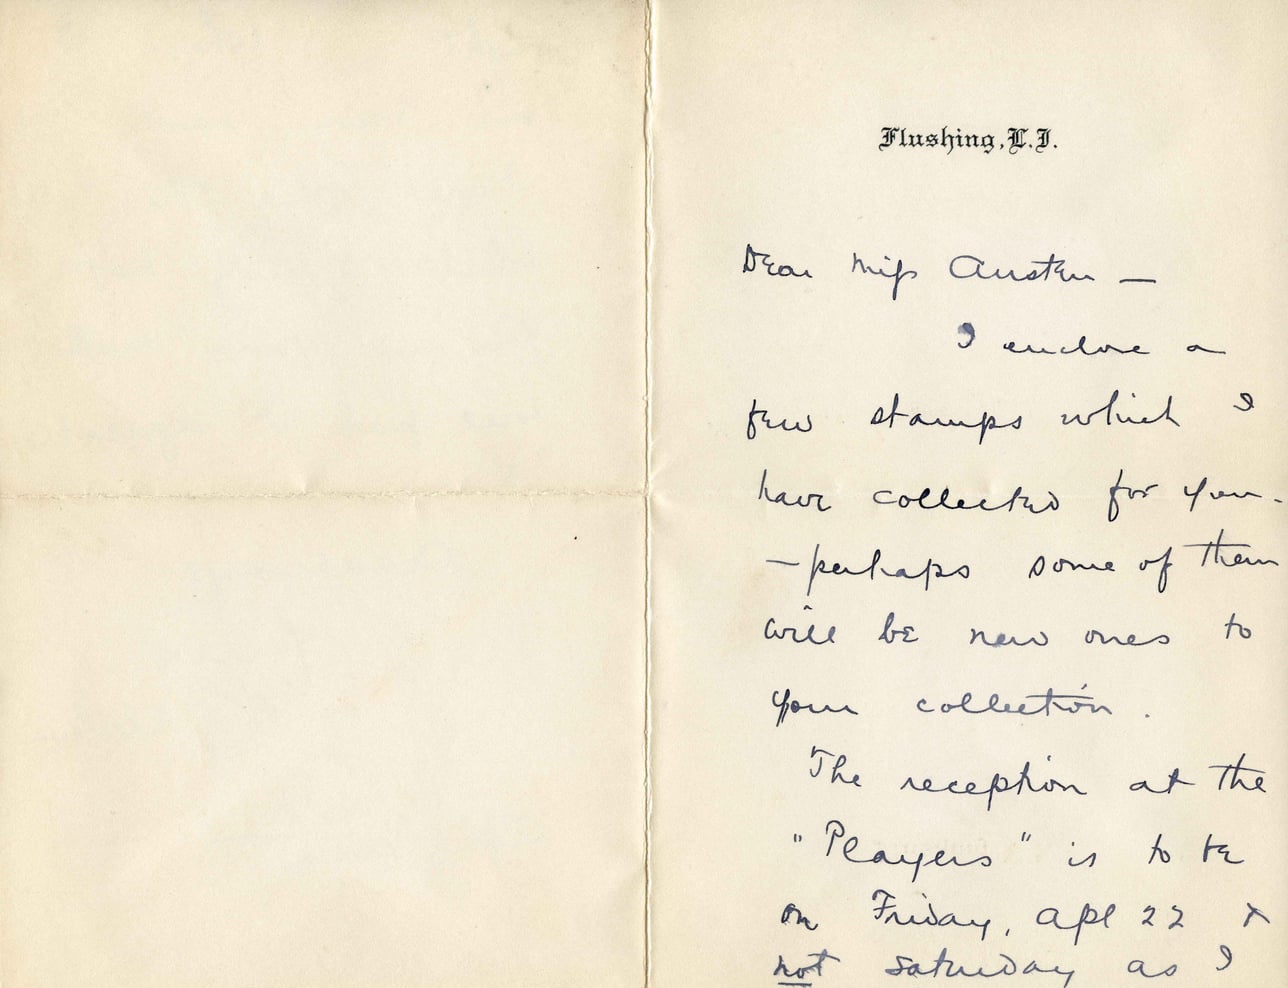 Flushing, L.I.
Dear Miss Austen —
I enclose a
few stamps which I
have collected for you -
— perhaps some of them
will be new ones to
your collection.
The reception at the
"Players" is to be
on Friday, Apl 22 &
not Saturday as I